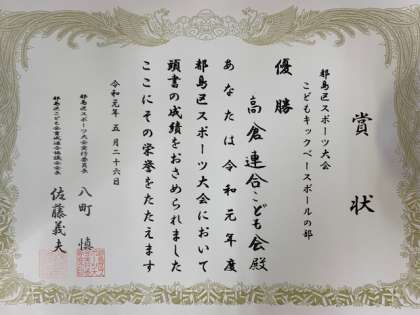 賞状
都島区スポーツ大会
こどもキックベースボールの部
優勝
高倉連合こども会殿
あなたは令和元年度
都島区スポーツ大会において
頭書の成績をおさめられました
ここにその栄誉をたたえます
令和元年五月二十六日
都島区スポーツ大会実行委員長
八町慎
都島区こども会育成連合協議会会長
佐藤義夫